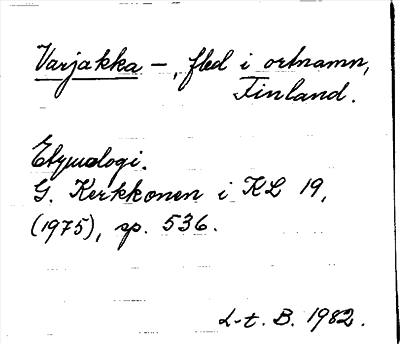 Varjakka –, fled i ortnamn,
Finland.
Etymologi.
G. Kerkkonen i KL 19,
(1975), sp. 536.
L-t. B. 1982.